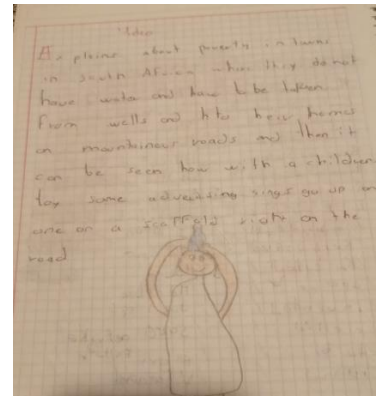 Video
Explains about poverty in towns
in South Africa when they do not
have water and have to be taken
from wells and how heir homes
on mountainous roads and then it
can be seen how with a children
toy some advertising sings go up on
one on a scaffold right on the
road